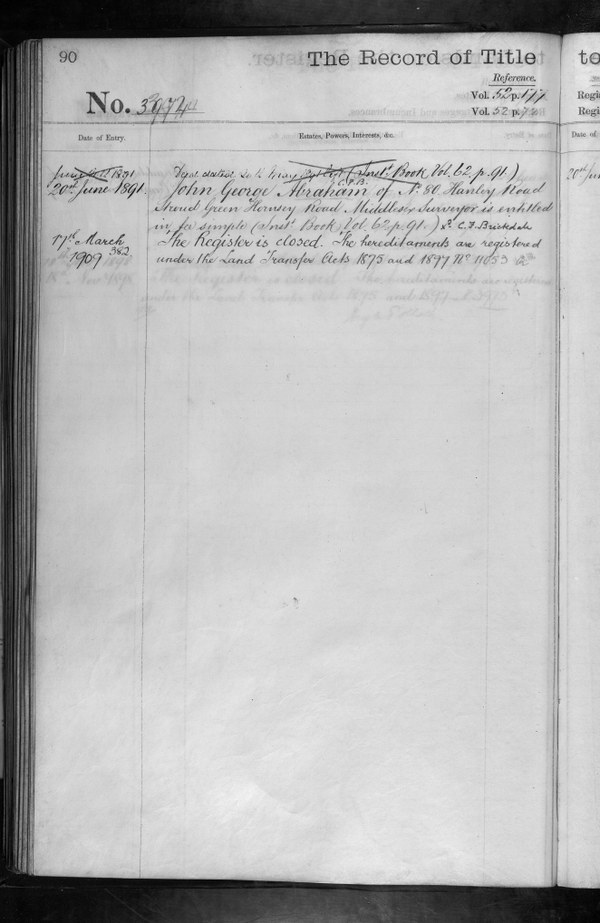 90
The Record of Title
Reference.
No. 3972
Vol. 52 p. 177
Vol. 52 p. 72
Date of Entry.
Estates, Powers, Interests, &c.
1891
(Inst. Book Vol. 62. p. 91.)
20th June 1891.
John George Abraham of No. 80 Hanley Road
Stroud Green Hornsey Road Middlesex Surveyor is entitled
in fee simple (Inst. Book Vol. 62 p. 91.) C. F. Brickdale
17th March
382
1909
The Register is closed. The hereditaments are registered
under the Land Transfer Acts 1875 and 1897 No 11053
te
Regi
Regi
Date of
20th Jun